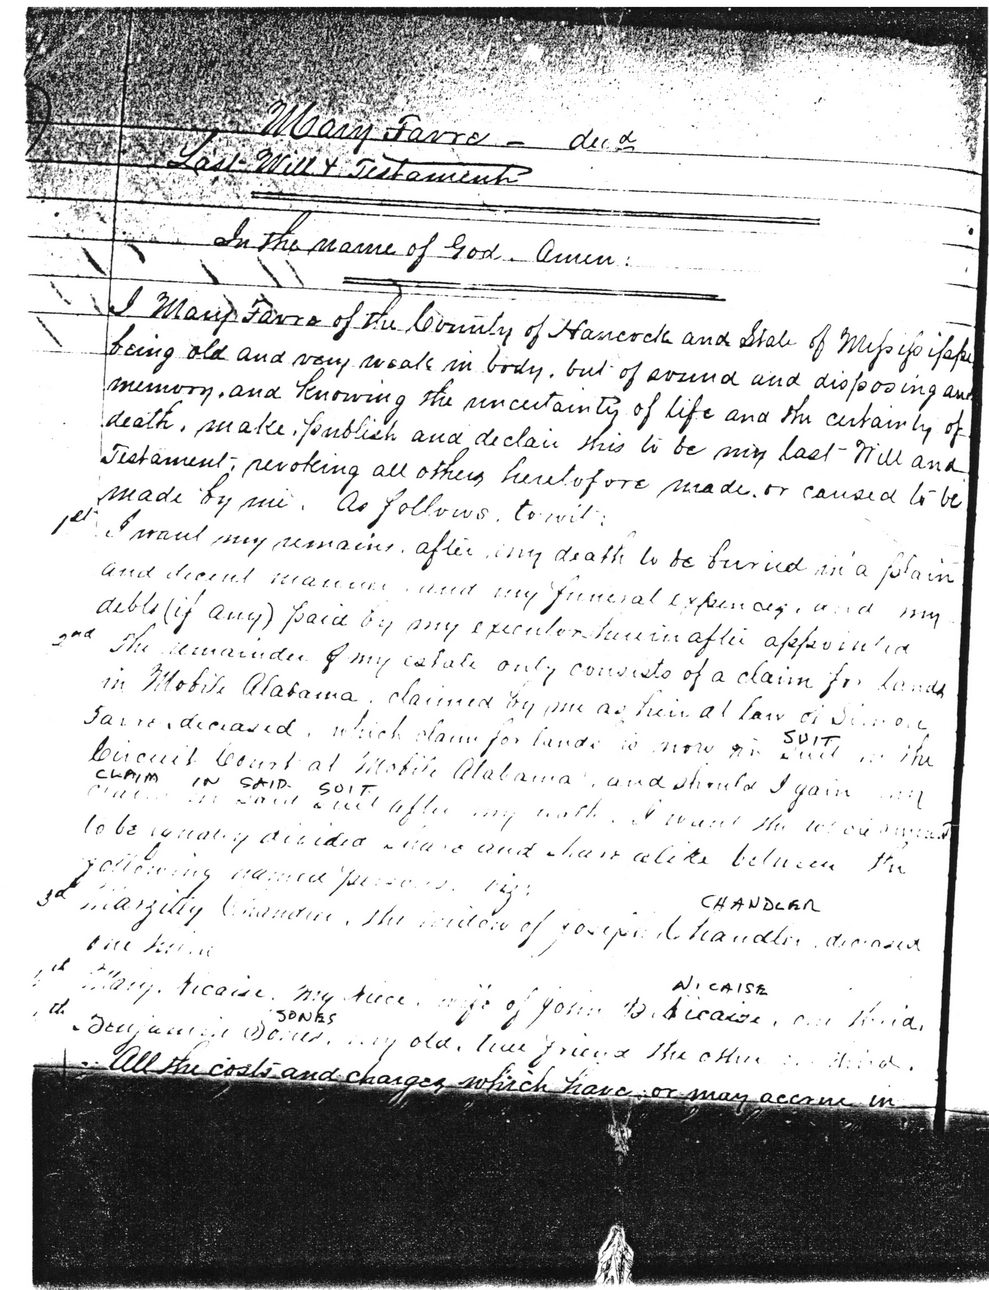 Mary Favre - decd
Last Will & Testament
In the name of God. Amen:
I Mary Favre of the County of Hancock and State of Mississippi
being old and very weak in body, but of sound and disposing and
memory, and knowing the uncertainty of life and the certainty of
death, make, publish and declair this to be my last Will and
Testament, revoking all others heretofore made, or caused to be
made by me. As follows, to wit:
1st I want my remains, after my death to be buried in a plain
and decent manner, and my funeral expences, and my
debts (if any) paid by my executor hereinafter appointed
2nd The remainder of my estate only consists of a claim for lands
in Mobile Alabama, claimed by me as heir at law of Simon
Favre, deceased, which claim for lands is now in suit in the
SUIT
Circuit Court at Mobile Alabama, and should I gain my
CLAIM IN SAID SUIT
claim in said suit after my death, I want the whole amount
to be equally divided share and share alike between the
following named persons, viz:
CHANDLER
3d Chandler, the widow of Joseph Chandler, deceased
one third
NICAISE
4th Mary Nicaise, my niece, wife of John B. Nicaise, one third,
JONES
5th Benjamin Jones, my old, true friend the other third.
All the costs and charges which have or may accrue in